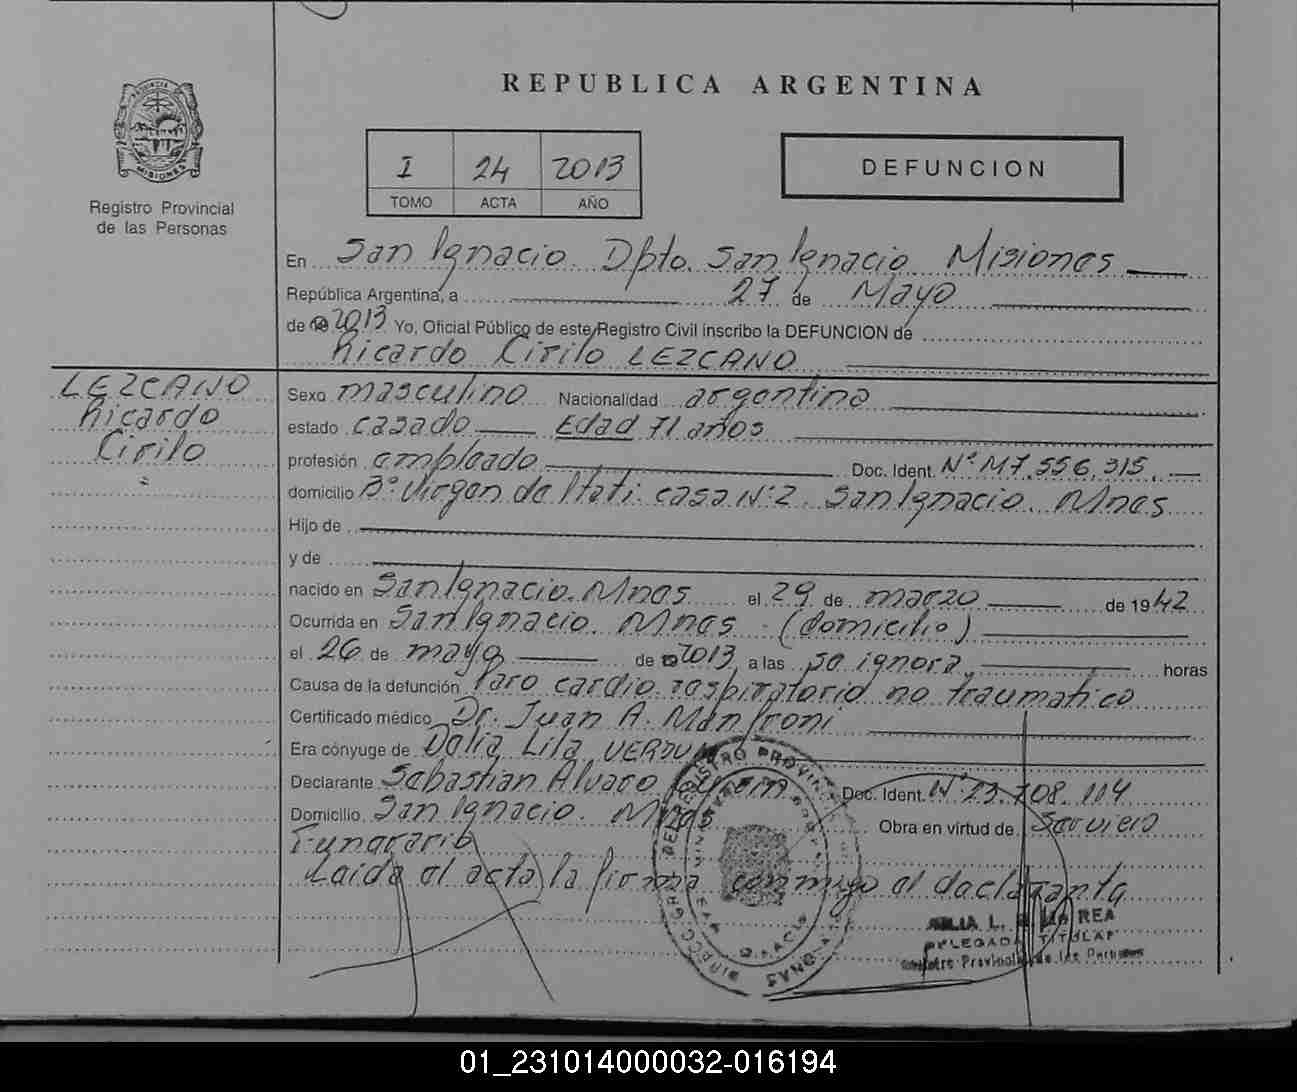 REPUBLICA ARGENTINA
I 24 2013
TOMO ACTA AÑO
DEFUNCION
PROVINCIA DE
MISIONES
Registro Provincial
de las Personas
En San Ignacio. Dpto. San Ignacio Misiones
República Argentina, a 27 de Mayo
de 2013 Yo, Oficial Público de este Registro Civil inscribo la DEFUNCION de
Ricardo Cirilo LEZCANO
LEZCANO
Ricardo
Cirilo
Sexo masculino Nacionalidad argentina
estado casado Edad 71 años
profesión empleado Doc. Ident. Nº M7.556.315.
domicilio Bº Virgen de Itati casa Nº 2. San Ignacio. Mnes
Hijo de
y de
nacido en San Ignacio. Mnes el 29 de marzo de 1942
Ocurrida en San Ignacio. Mnes (domicilio)
el 26 de mayo de 2013 a las se ignora horas
Causa de la defunción Paro cardio respiratorio no traumatico
Certificado médico Dr. Juan A. Manfroni
Era cónyuge de Dalia Lila VERDUN
Declarante Sebastian Alvaro
Doc. Ident. Nº 23.708.114
Domicilio San Ignacio. Mnes
Obra en virtud de Servicio
Funerario
Leida el acta, la firma conmigo el declarante
DELEGADA TITULAR
Registro Provincial de las Personas
01_231014000032-016194